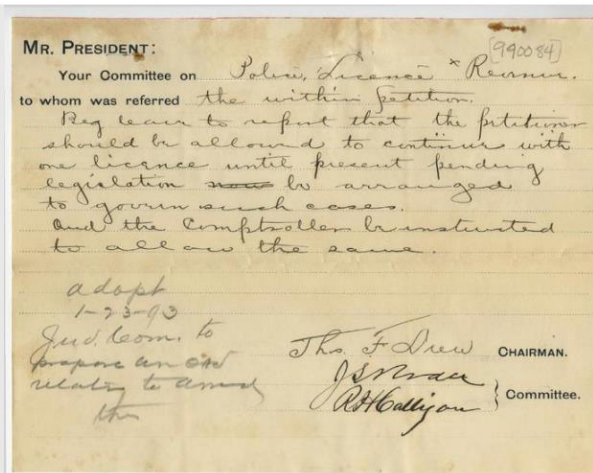 [990084]
MR. PRESIDENT:
Your Committee on Police, Licence & Revenue.
to whom was referred the within petition.
Beg leave to report that the petitioner
should be allowed to continue with
one licence until present pending
legislation now be arranged
to govern such cases.
And the Comptroller be instructed
to allow the same.
adopt
1-23-93
Jud. Com. to
prepare an Ord
relating to
Thos. F Drew CHAIRMAN.
Committee.